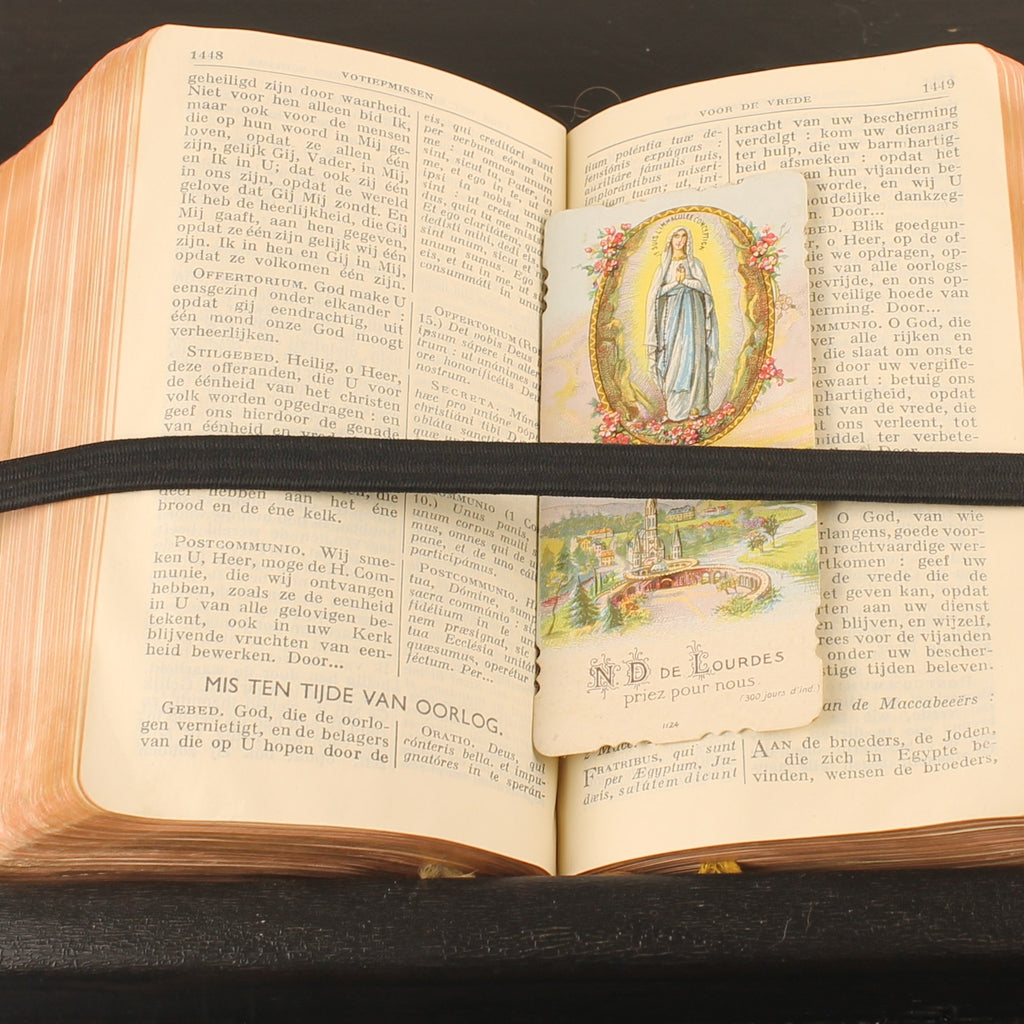 1448
VOTIEFMISSEN
geheiligd zijn door waarheid.
Niet voor hen alleen bid Ik,
maar ook voor de mensen
die op hun woord in Mij ge-
loven, opdat ze allen één
zijn, gelijk Gij, Vader, in Mij,
en Ik in U; dat ook zij één
in ons zijn, opdat de wereld
gelove dat Gij Mij zondt. En
Ik heb de heerlijkheid, die Gij
Mij gaaft, aan hen gegeven,
opdat ze één zijn gelijk wij één
zijn. Ik in hen en Gij in Mij,
opdat ze volkomen één zijn.
OFFERTORIUM. God make U
eensgezind onder elkander :
opdat gij eendrachtig, uit
één mond onze God moogt
verheerlijken.
STILGEBED. Heilig, o Heer,
deze offeranden, die U voor
de éénheid van het christen
volk worden opgedragen : en
geef ons hierdoor de genade
van éénheid en
deer hebben aan het éne
brood en de éne kelk.
POSTCOMMUNIO. Wij sme-
ken U, Heer, moge de H. Com-
munie, die wij ontvangen
hebben, zoals ze de eenheid
in U van alle gelovigen be-
tekent, ook in uw Kerk
blijvende vruchten van een-
heid bewerken. Door...
eis, qui creditúri sunt
per verbum eórum in
me : ut omnes unum
sint, sicut tu, Pater, in
me, et ego in te, ut et
ipsi in nobis unum
sint : ut credat mun-
dus, quia tu me misísti.
Et ego claritátem, quam
dedísti mihi, dedi eis : ut
sint unum, sicut et nos
unum sumus. Ego in
eis, et tu in me, ut sint
consummáti in unum.
OFFERTORIUM (Rom.
15.) Det nobis Deus id-
ípsum sápere in alter-
utrum : ut unánimes uno
ore honorificétis Deum
nostrum.
SECRETA.
hæc pro unióne
christiáni tibi
obláta
COMMUNIO (1 Co
10.) Unus panis,
unum corpus multi su-
mus, omnes qui de uno
pane, et de uno cáli
participámus.
POSTCOMMUNIO. H
tua, Dómine, sump
sacra commúnio : sic
fidélium in te un
nem præsígnat, sic
tua Ecclésia unitát
quæsumus, operétur
féctum. Per...
MIS TEN TIJDE VAN OORLOG.
GEBED. God, die de oorlo-
gen vernietigt, en de belagers
van die op U hopen door de
ORATIO. Deus, qui
cónteris bella, et impu-
gnatóres in te sperán-
VOOR DE VREDE
1449
tium poténtia tuæ de-
fensiónis expúgnas :
auxiliáre fámulis tuis,
implorántibus miseri-
iam tuam; ut, ini-
kracht van uw bescherming
verdelgt : kom uw dienaars
ter hulp, die uw barmhartig-
heid afsmeken : opdat het
an hun vijanden be-
worde, en wij U
houdelijke dankzeg-
n. Door...
BED. Blik goedgun-
, o Heer, op de of-
die we opdragen, op-
ns van alle oorlogs-
bevrijde, en ons op-
de veilige hoede van
herming. Door...
OMMUNIO. O God, die
ver alle rijken en
, die slaat om ons te
door uw vergiffe-
ewaart : betuig ons
mhartigheid, opdat
st van de vrede, die
ht ons verleent, tot
middel ter verbete-
Door...
O God, van wie
erlangens, goede voor-
n rechtvaardige wer-
rtkomen : geef uw
de vrede die de
et geven kan, opdat
rten aan uw dienst
n blijven, en wijzelf,
rees voor de vijanden
onder uw bescher-
stige tijden beleven.
an de Maccabeeërs :
2 Macc.
FRATRIBUS, qui sunt
per Ægyptum, Ju-
dæis, salútem dicunt
AAN de broeders, de Joden,
die zich in Egypte be-
vinden, wensen de broeders,
JE SUIS L'IMMACULÉE CONCEPTION
N D DE LOURDES
priez pour nous
(300 jours d'ind.)
1124